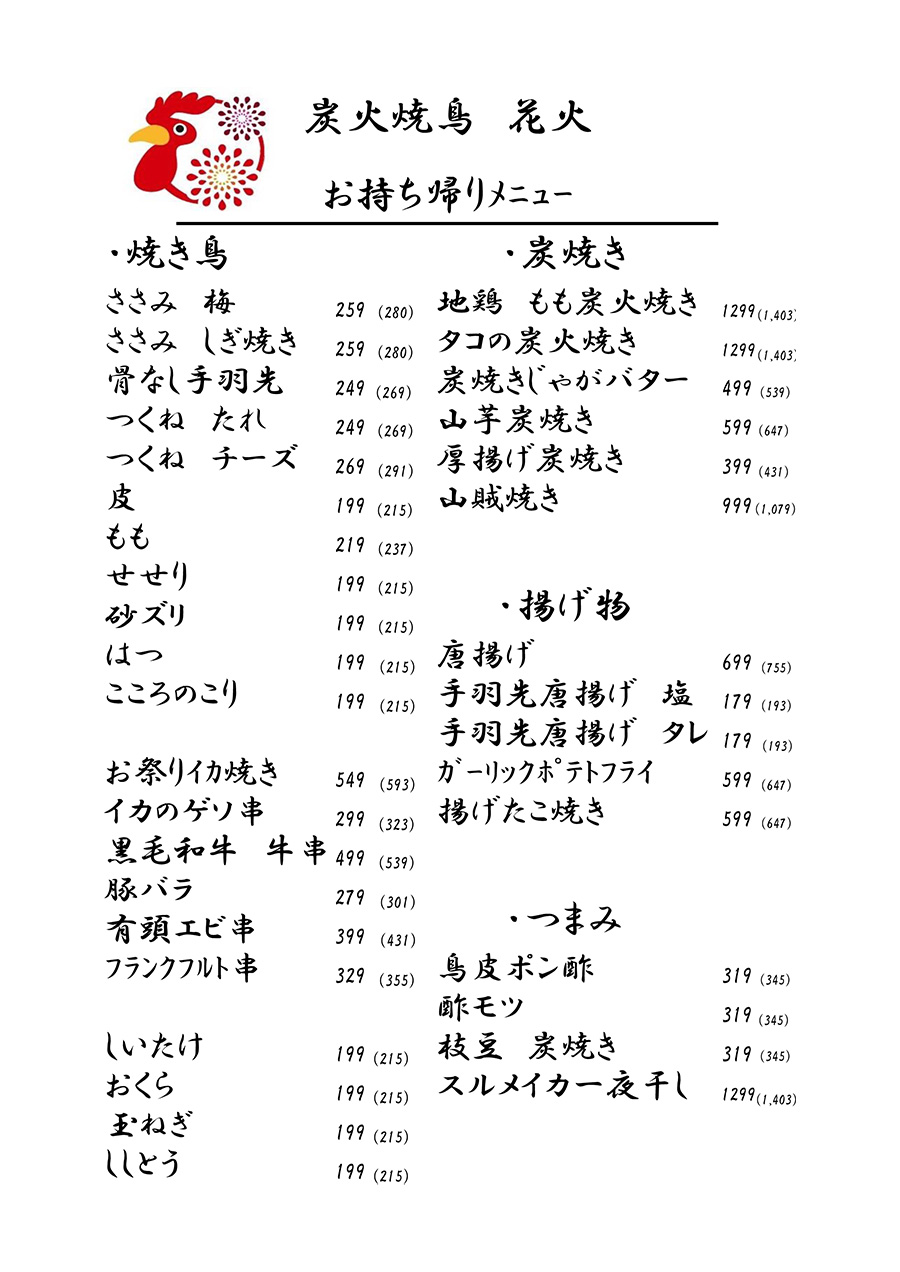 炭火焼鳥 花火
お持ち帰りメニュー
・焼き鳥
ささみ 梅 259 (280)
ささみ しぎ焼き 259 (280)
骨なし手羽先 249 (269)
つくね たれ 249 (269)
つくね チーズ 269 (291)
皮 199 (215)
もも 219 (237)
せせり 199 (215)
砂ズリ 199 (215)
はつ 199 (215)
こころのこり 199 (215)
お祭りイカ焼き 549 (593)
イカのゲソ串 299 (323)
黒毛和牛 牛串 499 (539)
豚バラ 279 (301)
有頭エビ串 399 (431)
フランクフルト串 329 (355)
しいたけ 199 (215)
おくら 199 (215)
玉ねぎ 199 (215)
ししとう 199 (215)
・炭焼き
地鶏 もも炭火焼き 1299(1,403)
タコの炭火焼き 1299(1,403)
炭焼きじゃがバター 499 (539)
山芋炭焼き 599 (647)
厚揚げ炭焼き 399 (431)
山賊焼き 999(1,079)
・揚げ物
唐揚げ 699 (755)
手羽先唐揚げ 塩 179 (193)
手羽先唐揚げ タレ 179 (193)
ガーリックポテトフライ 599 (647)
揚げたこ焼き 599 (647)
・つまみ
鳥皮ポン酢 319 (345)
酢モツ 319 (345)
枝豆 炭焼き 319 (345)
スルメイカ一夜干し 1299(1,403)